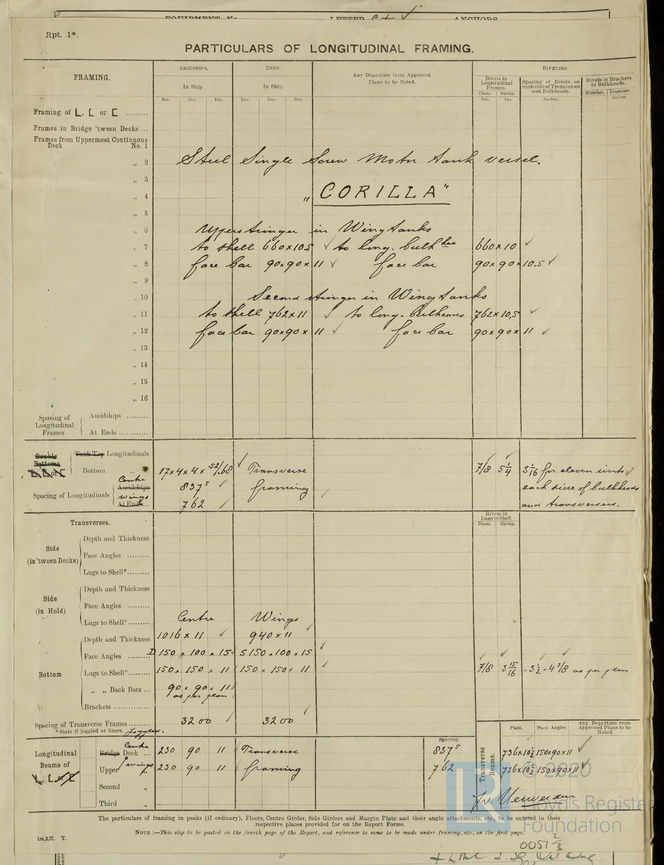 Rpt. 1*.
PARTICULARS OF LONGITUDINAL FRAMING.
FRAMING.
AMIDSHIPS.
ENDS.
In Ship.
In Ship.
Any Departure from Approved Plans to be Noted.
RIVETING.
Rivets in Longitudinal Frames.
Spacing of Rivets on each side of Transverses and Bulkheads.
Rivets in Brackets to Bulkheads.
Framing of L, [ or [
Frames in Bridge 'tween Decks ...
Frames from Uppermost Continuous Deck No. 1
„ 2 Steel Single Screw Motor tank vessel.
„ 3
„ 4 "CORILLA"
„ 5
„ 6 Upper stringer in Wing tanks
„ 7 to shell 660 x 10.5 ✓ to long. bulk 660 x 10 ✓
„ 8 face bar 90 x 90 x 11 ✓ face bar 90 x 90 x 10.5 ✓
„ 9
„ 10 Second stringer in Wing tanks
„ 11 to shell 762 x 11 ✓ to long. bulkheads 762 x 10.5 ✓
„ 12 face bar 90 x 90 x 11 ✓ face bar 90 x 90 x 11 ✓
„ 13
„ 14
„ 15
„ 16
Spacing of Longitudinal Frames
Amidships
At Ends
Double Bottoms
Tank Top Longitudinals
Bottom „ 17 x 4 x 4 x 52/.68 ✓ Transverse 7/8 5 1/4 3 5/16 for eleven rivets
Spacing of Longitudinals
Centre Amidships 837⁵ ✓ framing each side of bulkheads
wings At Ends 762 ✓ and transverses.
Transverses.
Rivets in Lugs to Shell
Diam. Spcing.
Side (in 'tween Decks)
Depth and Thickness
Face Angles
Lugs to Shell*
Side (in Hold)
Depth and Thickness
Face Angles
Lugs to Shell*
Centre Wings
Bottom
Depth and Thickness 1016 x 11 ✓ 940 x 11
Face Angles 150 x 100 x 15 ✓ 150 x 100 x 15 ✓
Lugs to Shell* 150 x 150 x 11 150 x 150 x 11 ✓ 7/8 3 15/16 - 3 1/2 - 4 3/8 as per plan
„ „ Back Bars 90 x 90 x 11
as per plan
Brackets
Spacing of Transverse Frames 3200 ✓ 3200 ✓
* State if joggled or liners. Joggled.
Longitudinal Beams of
Centre
Bridge Deck 230 90 11 Transverse 837⁵
Upper „ 230 90 11 framing 762
Second „
Third „
Spacing.
Transverse Beams.
Plate. Face Angles. Any Departure from Approved Plans to be Noted.
736 x 10½ 150x90x11 ✓
736 x 10½ 150x90x11 ✓
The particulars of framing in peaks (if ordinary), Floors, Centre Girder, Side Girders and Margin Plate and their angle attachments, to be entered in their respective places provided for on the Report Forms.
NOTE:—This slip to be posted on the fourth page of the Report, and reference to same to be made under framing, etc., on the first page.
© 2020
Lloyd's Register
Foundation